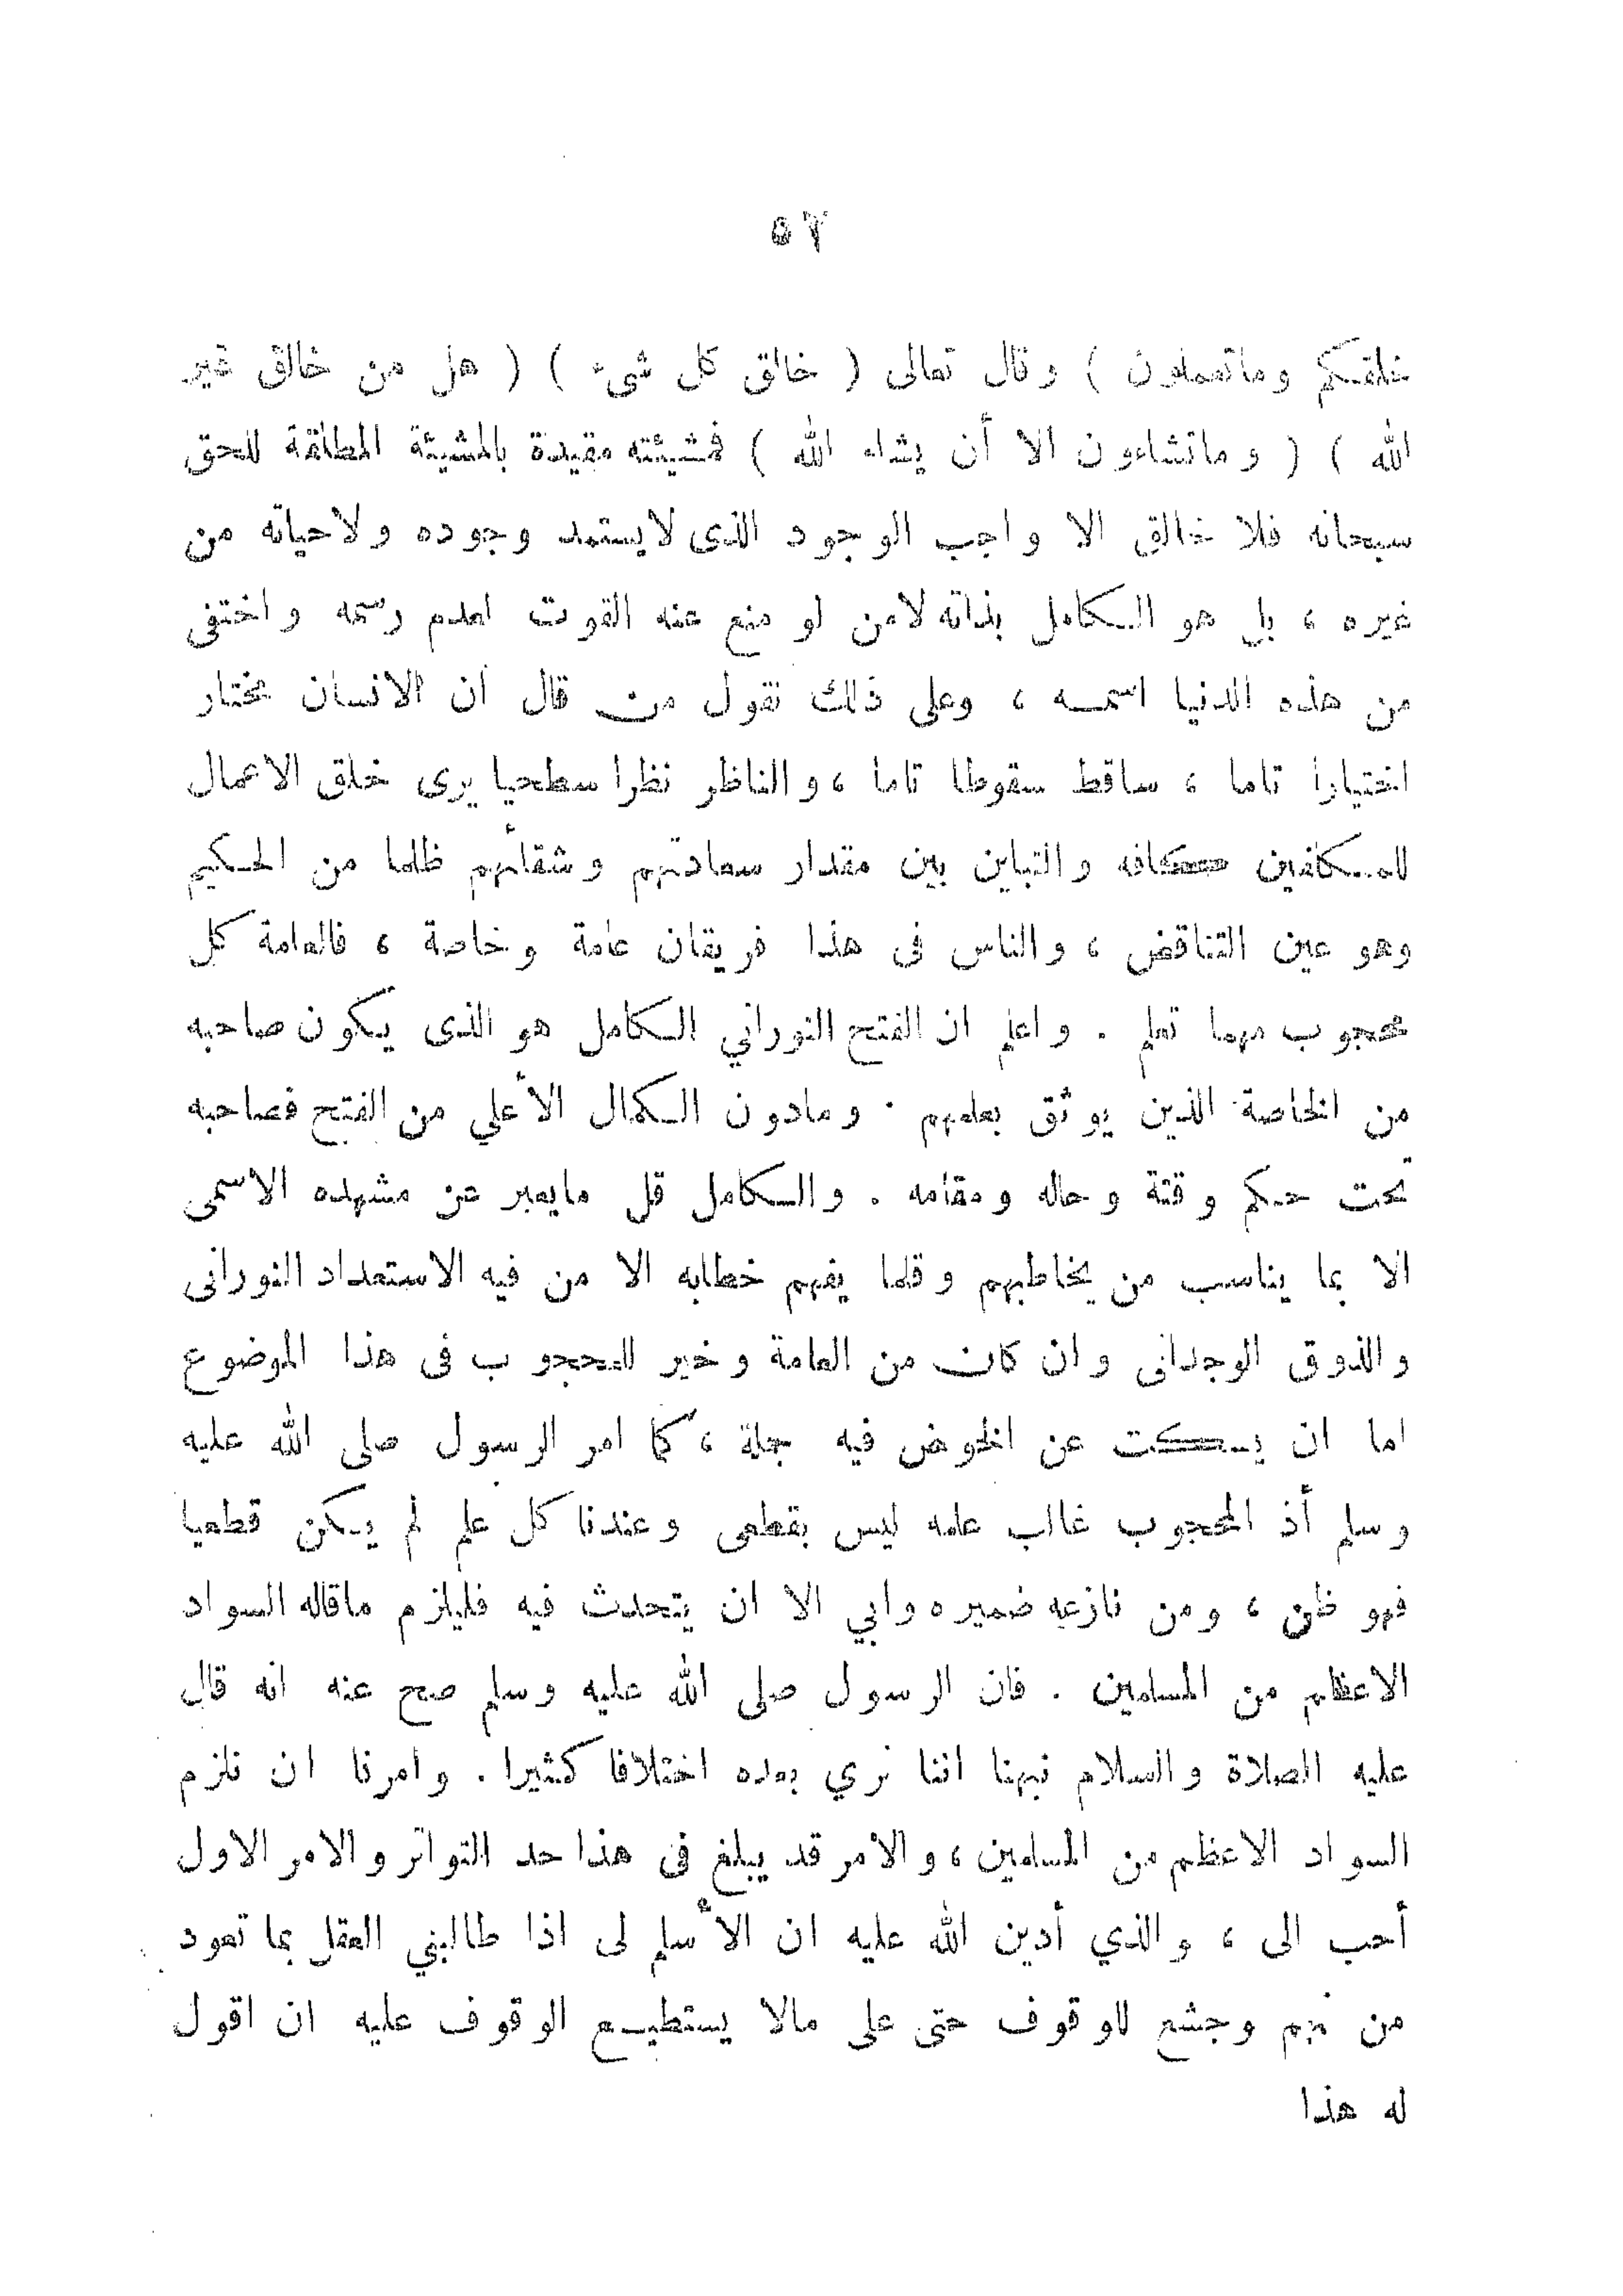 ٥٧
خلقكم وماتعملون ) وقال تعالى ( خالق كل شىء ) ( هل من خالق غير
الله ) ( وماتشاءون الا أن يشاء الله ) فمشيئته مقيدة بالمشيئة المطلقة للحق
سبحانه فلا خالق الا واجب الوجود الذى لايستمد وجوده ولاحياته من
غيره ، بل هو الكامل بذاته لامن لو منع عنه القوت لعدم رسمه واختفى
من هذه الدنيا اسمه ، وعلى ذلك نقول من قال ان الانسان مختار
اختيارا تاما ، ساقط سقوطا تاما ، والناظر نظرا سطحيا يرى خلق الاعمال
للمكلفين كافه والتباين بين مقدار سعادتهم وشقائهم ظلما من الحكيم
وهو عين التناقض ، والناس فى هذا فريقان عامة وخاصة ، فالعامة كل
محجوب مهما تعلم . واعلم ان الفتح النوراني الكامل هو الذى يكون صاحبه
من الخاصة الذين يوثق بعلمهم . ومادون الكمال الأعلي من الفتح فصاحبه
تحت حكم وقتة وحاله ومقامه . والكامل قل مايعبر عن مشهده الاسمى
الا بما يناسب من يخاطبهم وقلما يفهم خطابه الا من فيه الاستعداد النورانى
والذوق الوجدانى وان كان من العامة وخير للمحجوب فى هذا الموضوع
اما ان يسكت عن الخوض فيه جملة ، كما امر الرسول صلى الله عليه
وسلم أذ المحجوب غالب علمه ليس بقطعى وعندنا كل علم لم يكن قطعيا
فهو ظن ، ومن نازعه ضميره وابي الا ان يتحدث فيه فليلزم ماقاله السواد
الاعظم من المسلمين . فان الرسول صلى الله عليه وسلم صح عنه انه قال
عليه الصلاة والسلام نبهنا اننا نري بعده اختلافا كثيرا . وامرنا ان نلزم
السواد الاعظم من المسلمين ، والامر قد يبلغ فى هذا حد التواتر والامر الاول
أحب الى ، والذي أدين الله عليه ان الأسلم لى اذا طالبني العقل بما تعود
من نهم وجشع للوقوف حتى على مالا يستطيع الوقوف عليه ان اقول
له هذا